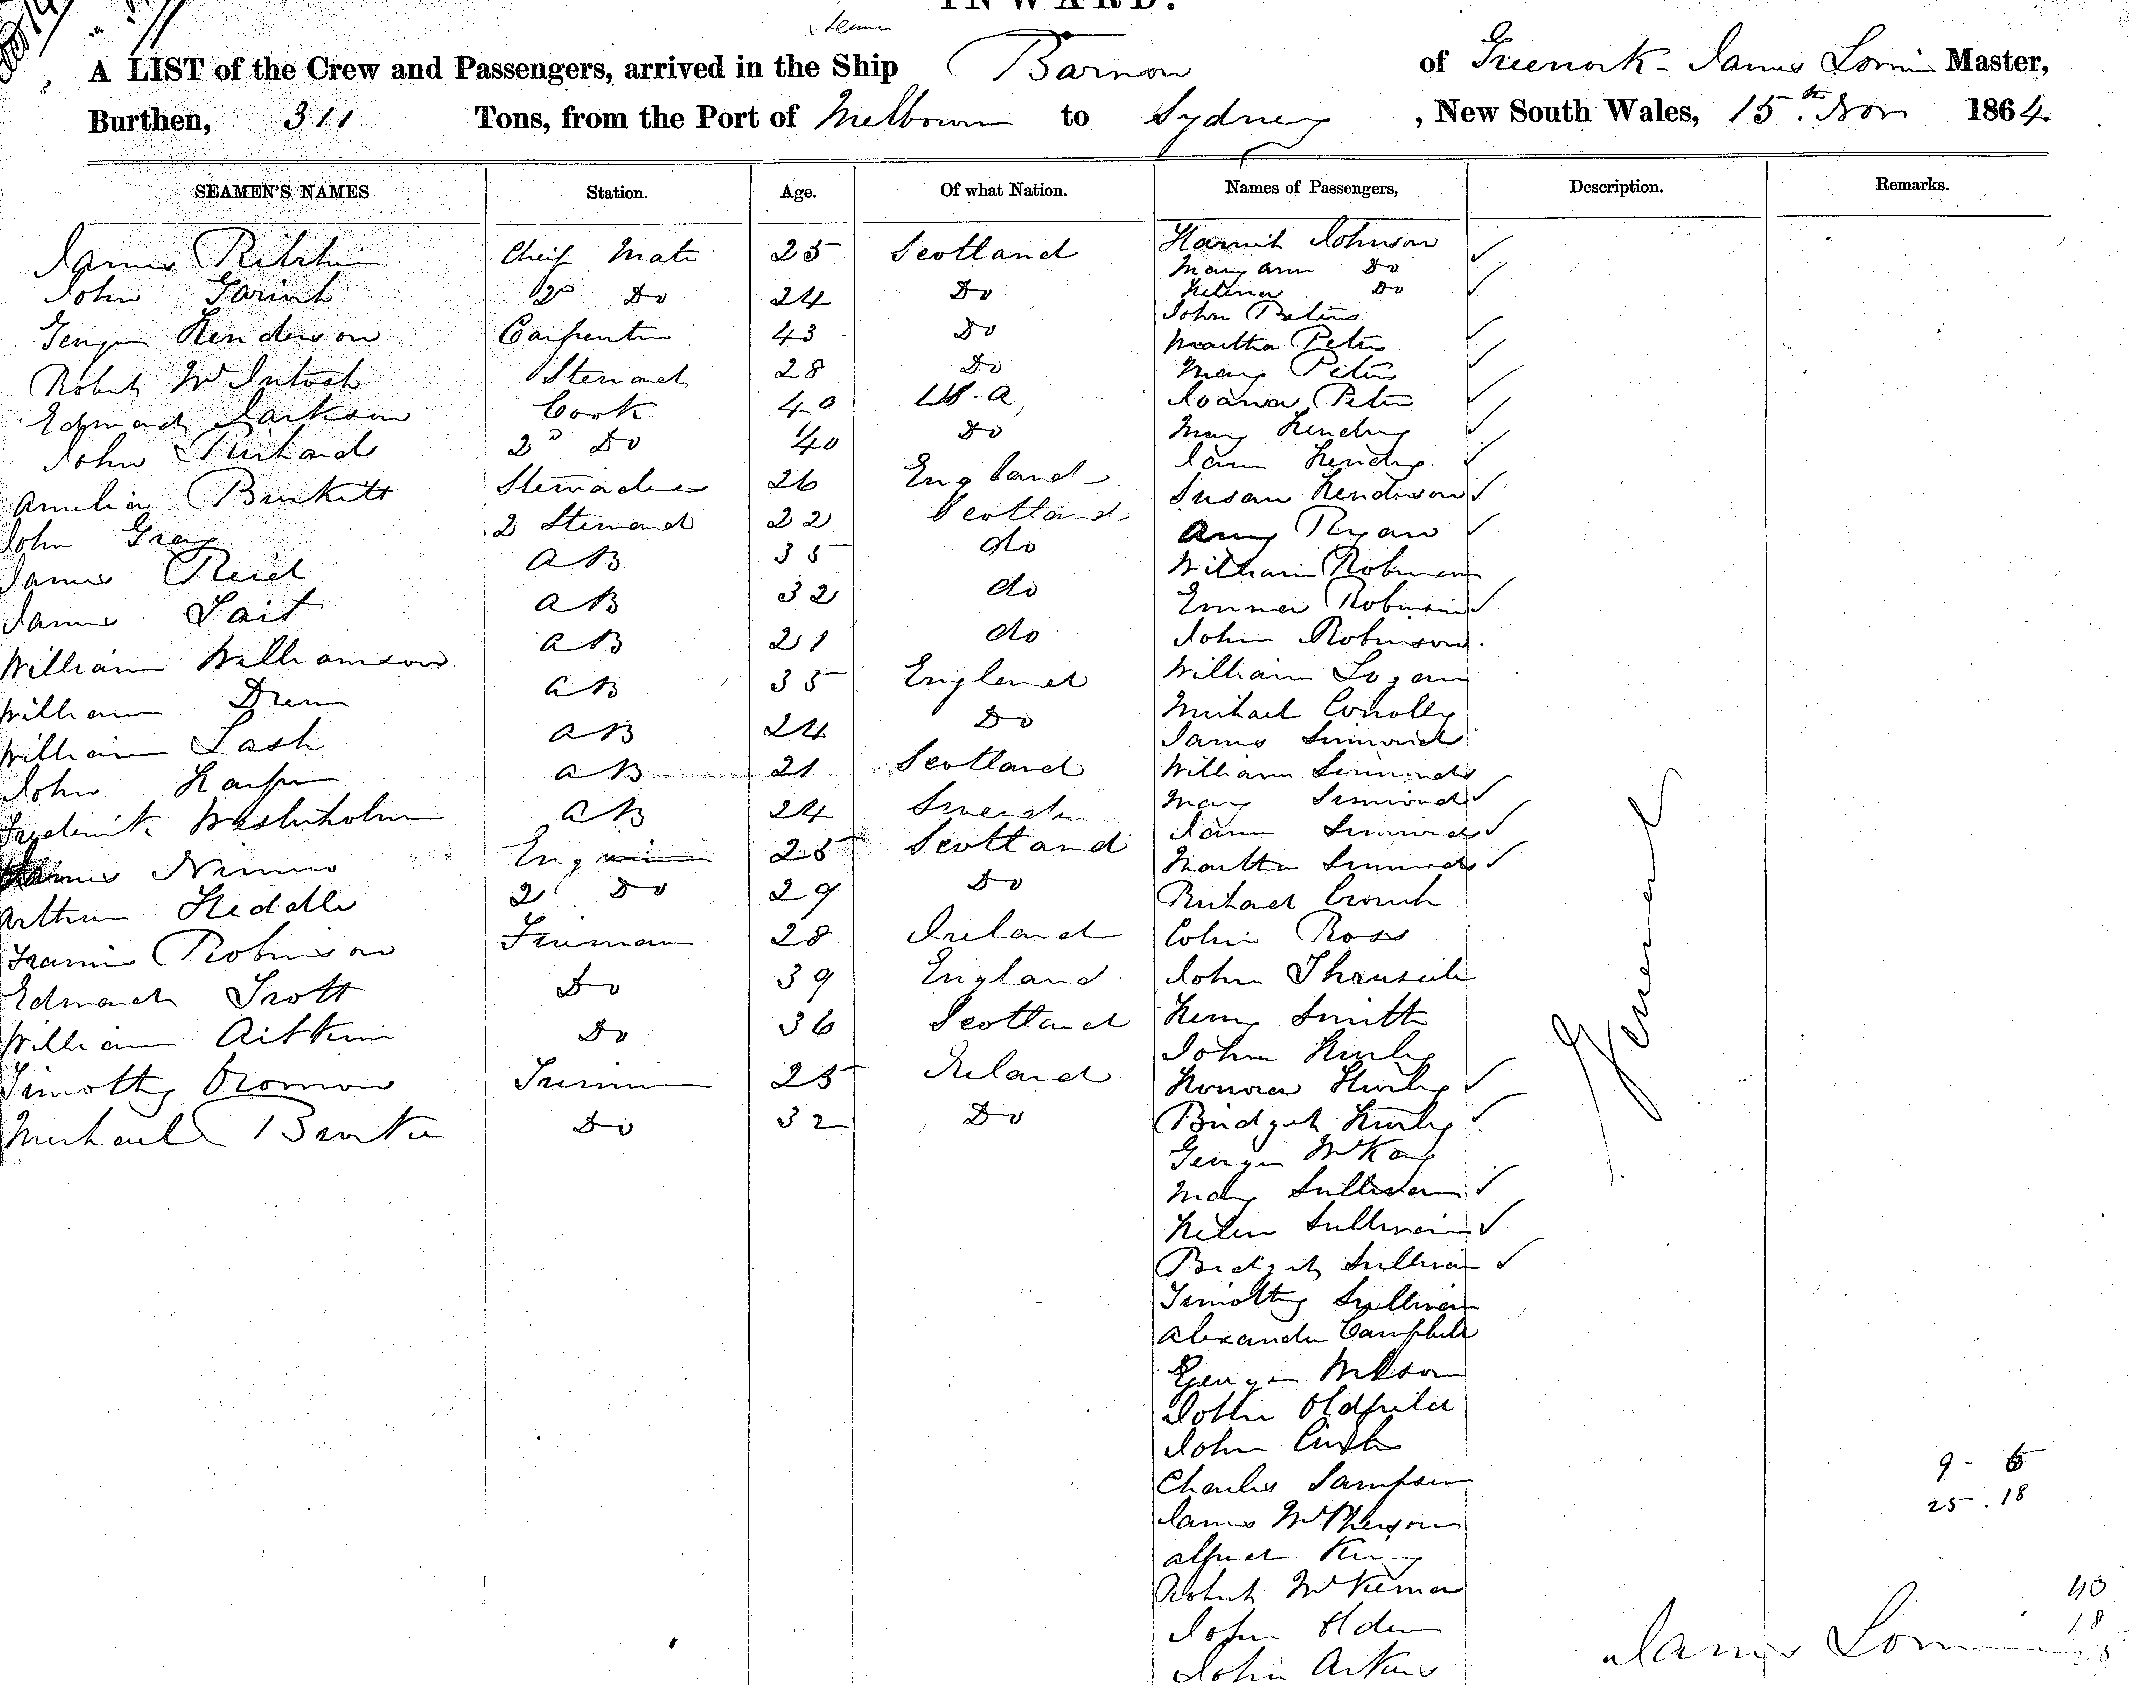 INWARD.
Steamer
A LIST of the Crew and Passengers, arrived in the Ship Barwon of Greenock James Lorimer Master,
Burthen, 311 Tons, from the Port of Melbourne to Sydney, New South Wales, 15th Nov 1864
SEAMEN'S NAMES Station. Age. Of what Nation. Names of Passengers, Description. Remarks.
James Ritchie Cheif Mate 25 Scotland Johnson
John 2nd Do 24 Do Mary Ann Do
Helena Do
George Henderson Carpenter 43 Do John Peters
Robert McIntosh Steward 28 Do Martha Peters
Mary Peters
Edmond Jackson Cook 40 U.S.A. Joana Peters
John Richards 2nd Do 40 Do Mary Hendry
Jane Hendry
Amelia Birkett Stewardess 26 England Susan Henderson
John Gray 2 Steward 22 Scotland Amy Ryan
James Reid AB 35 do William Robinson
James Tait AB 32 do Emma Robinson
William Williamson AB 21 do John Robinson
William AB 35 England William Logan
Michael Conolly
William Lash AB 24 Do James Simmonds
John AB 21 Scotland William Simmonds
Frederick AB 24 Sweden Mary Simmonds
Jane Simmonds
James Nimmo Engineer 25 Scotland Martha Simmonds
Arthur Heddle 2 Do 29 Do Richard Crouch
Francis Robinson Fireman 28 Ireland Colin Ross
Edward Scott Do 39 England John
William Aitken Do 36 Scotland Henry Smith
John Hurley
Timothy Cronow Trimmer 25 Ireland Honora Hurley
Michael Do 32 Do Bridget Hurley
George McKay
Mary Sullivan
Helen Sullivan
Bridget Sullivan
Timothy Sullivan
Alexander Campbell
George Wilson
John Oldfield
John
Charles Sampson
James McPherson
Alfred King
Robert McKiernan
John Olden
John Aitkens
General
9 - 6
25 . 18
40
18
James Lorimer